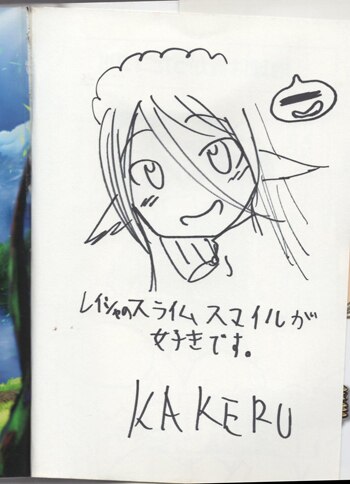 レイシャのスライムスマイルが
好きです。
KAKERU